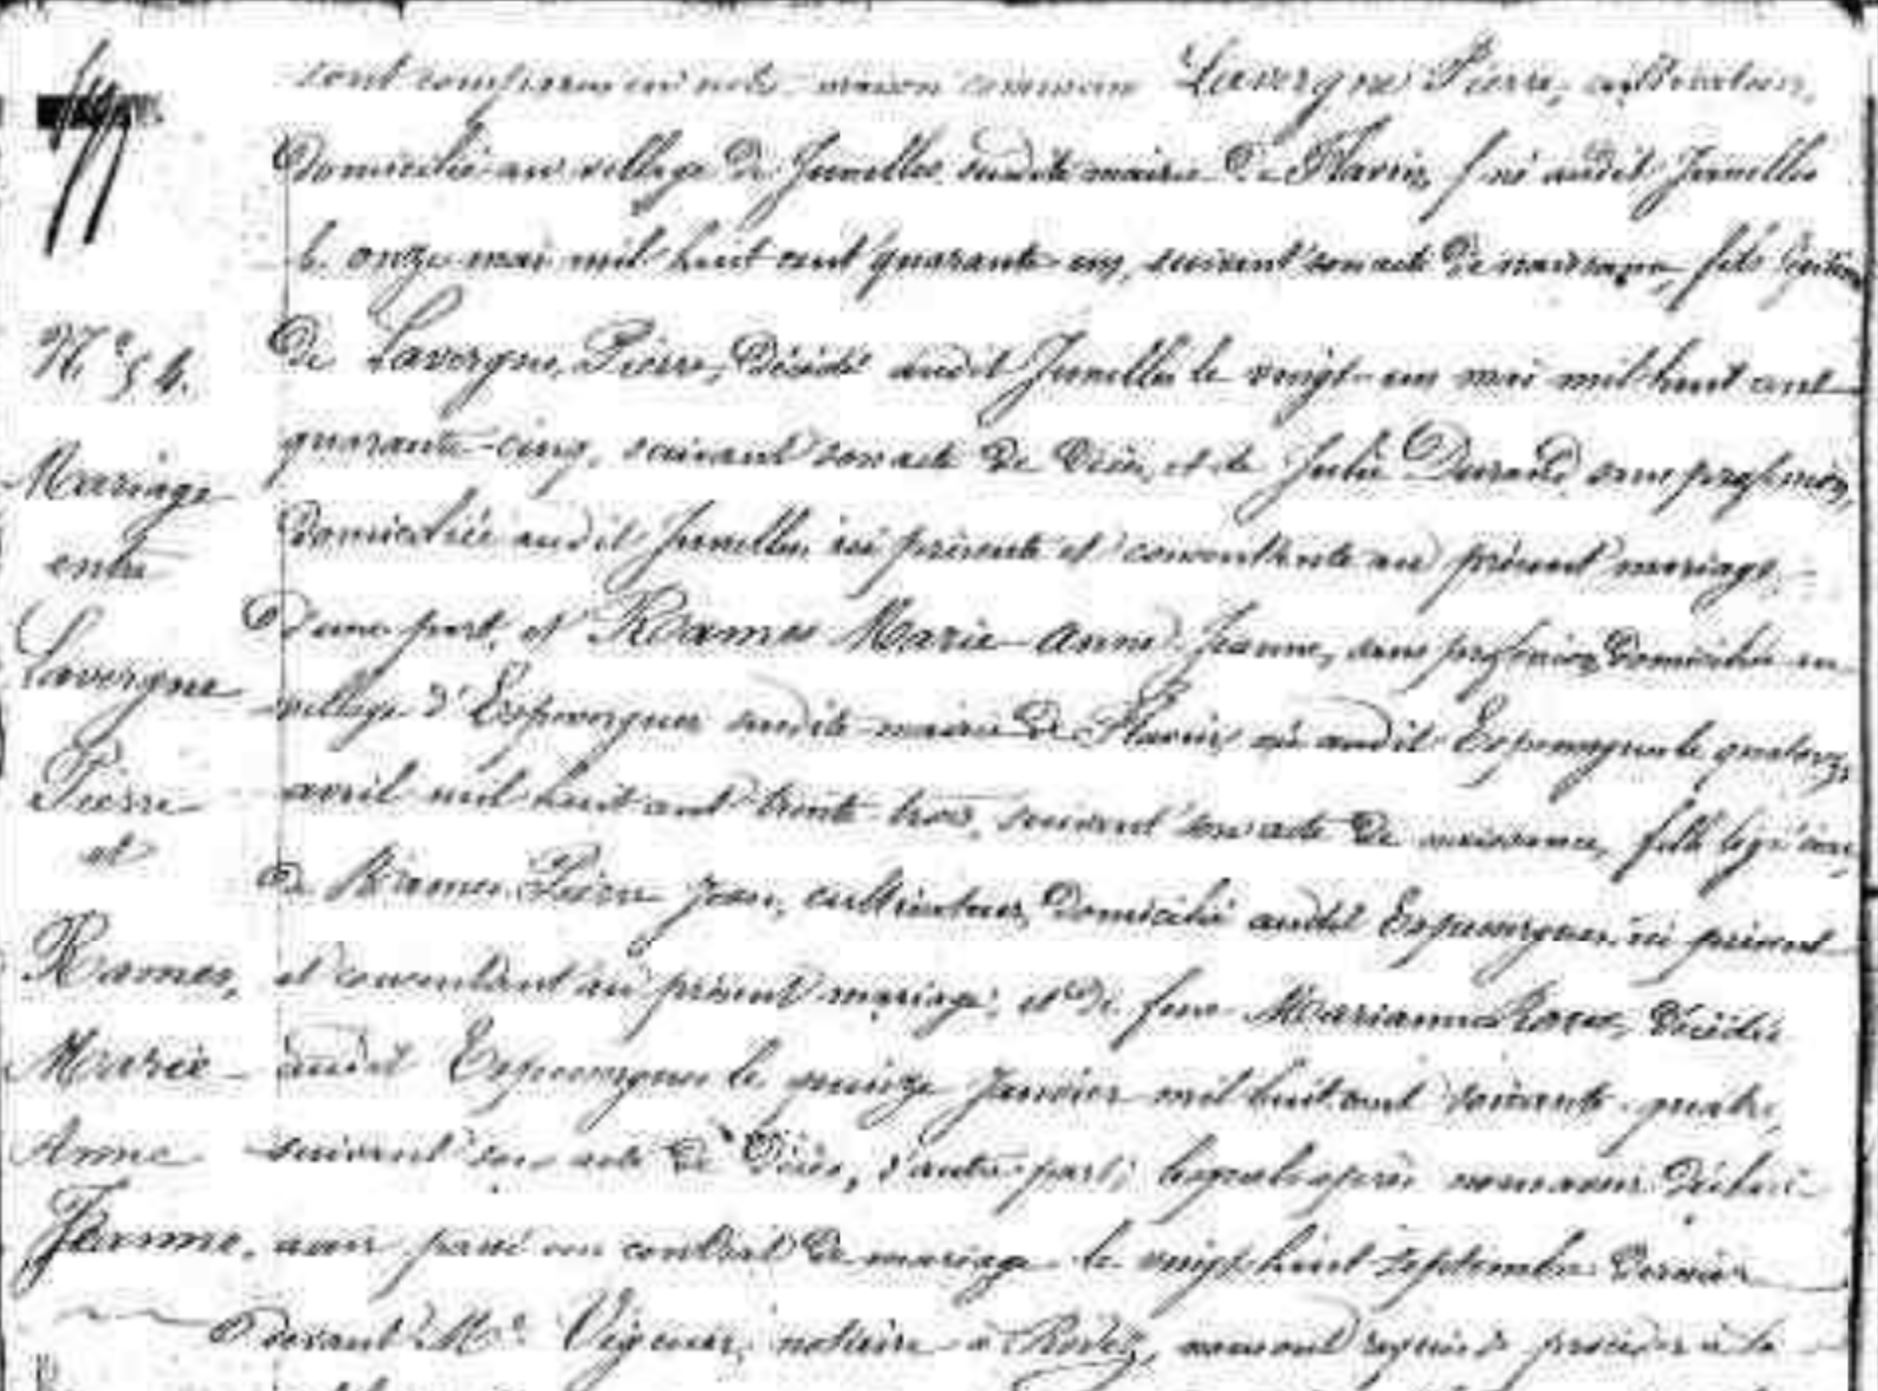 sont comparus en notre maison commune Lavergne Pierre, cultivateur,
domicilié au village de Junelles susdite mairie de Flavin, né audit Junelles
le onze mai mil huit cent quarante-un, suivant son acte de naissance, fils légitime
N° 54.
de Lavergne, Pierre, décédé audit Junelles le vingt-un mai mil huit cent
quarante-cinq, suivant son acte de décès, et de Julie Durand sans profession,
Mariage
domiciliée audit Junelles, ici présente et consentante au présent mariage,
entre
d'une part, et Rames Marie Anne Jeanne, sans profession, domiciliée au
Lavergne
village d'Espeyrgues susdite mairie de Flavin née audit le quatorze
Pierre
avril mil huit cent trente trois, suivant son acte de naissance, fille légitime
et
de Rames Pierre Jean, cultivateur, domicilié audit ici présent
Rames,
et consentant au présent mariage, et de feue Marianne Roux, décédée
Marie
audit le quinze Janvier mil huit cent soixante-quatre,
Anne
suivant son acte de décès, d'autre part; lesquels époux nous ayant déclaré
Jeanne.
avoir passé un contrat de mariage le vingt-huit septembre dernier
devant Me notaire à Rodez, nous ont requis de procéder à la